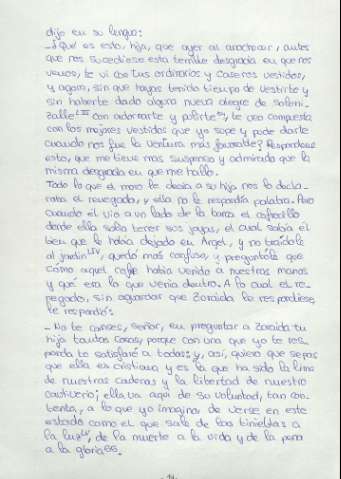 dijo en su lengua:
-¿Qué es esto, hija, que ayer al anochecer, antes
que nos sucediese esta terrible desgracia en que nos
vemos, te vi con tus ordinarios y caseros vestidos,
y agora, sin que hayas tenido tiempo de vestirte y
sin haberte dado alguna nueva alegre de solemni-
zalle con adornarte y pulirte, te veo compuesta
con los mejores vestidos que yo supe y pude darte
cuando nos fue la ventura más favorable? Respóndeme
esto, que me tiene más suspenso y admirado que la
misma desgracia en que me hallo.
Todo lo que el moro le decía a su hija nos lo decla-
raba el renegado, y ella no le respondía palabra. Pero
cuando él vio a un lado de la barca el cofrecillo
donde ella solía tener sus joyas, el cual sabía él
bien que le había dejado en Argel, y no traídole
al jardín, quedó más confuso, y preguntóle que
cómo aquel cofre había venido a nuestras manos
y qué era lo que venía dentro. A lo cual el re-
negado, sin aguardar que Zoraida le respondiese,
le respondió:
-No te canses, señor, en preguntar a Zoraida tu
hija tantas cosas, porque con una que yo te res-
ponda te satisfaré a todas; y, así, quiero que sepas
que ella es cristiana y es la que ha sido la lima
de nuestras cadenas y la libertad de nuestro
cautiverio; ella va aquí de su voluntad, tan con-
tenta, a lo que yo imagino, de verse en este
estado como el que sale de las tinieblas a
la luz, de la muerte a la vida y de la pena
a la gloria.